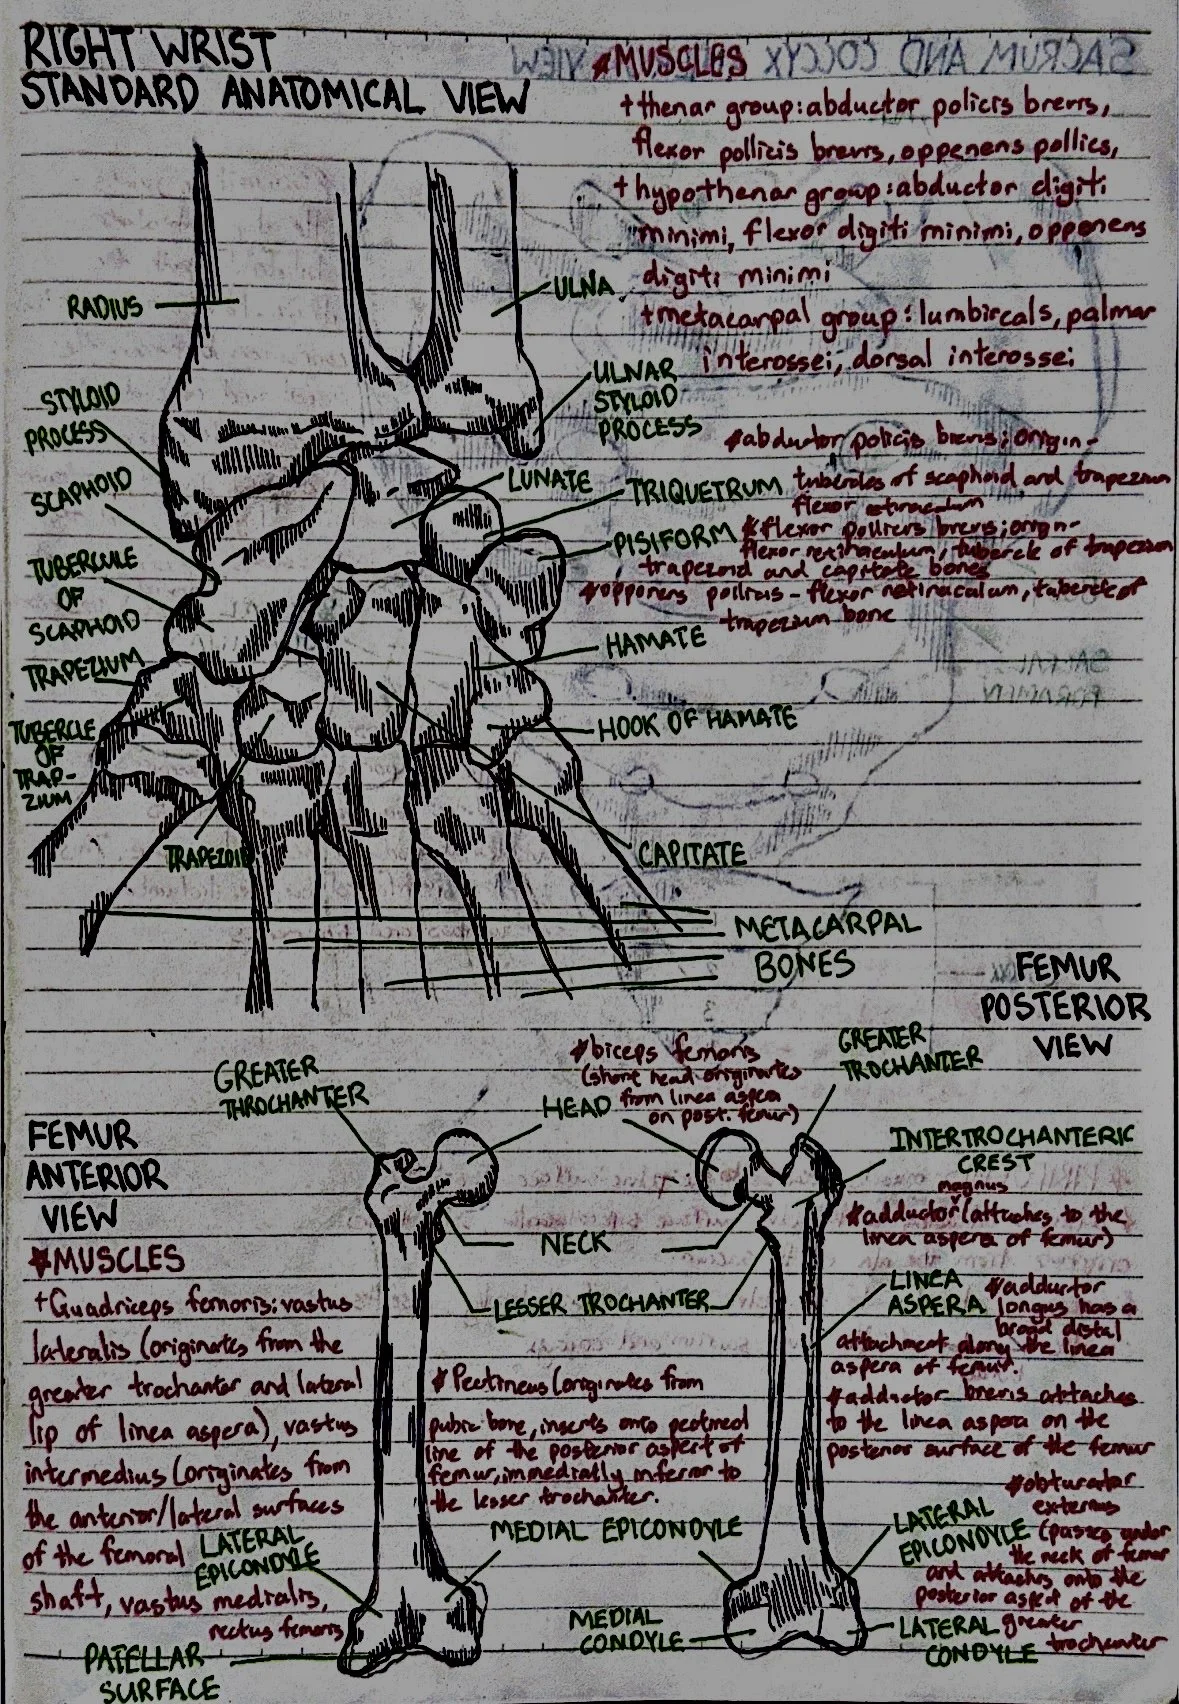 RIGHT WRIST
STANDARD ANATOMICAL VIEW
SACRUM AND COCCYX
VIEW
*MUSCLES
+thenar group:abductor policis brevis,
flexor pollicis brevis, oppenens pollics,
+hypothenar group:abductor digiti
minimi, flexor digiti minimi, opponens
digiti minimi
+metacarpal group: lumbircals, palmar
interossei, dorsal interossei
RADIUS
ULNA
STYLOID
PROCESS
ULNAR
STYLOID
PROCESS
SCAPHOID
LUNATE
TRIQUETRUM
PISIFORM
TUBERCULE
OF
SCAPHOID
TRAPEZIUM
TUBERCLE
OF
TRAP-
ZIUM
TRAPEZOID
HAMATE
HOOK OF HAMATE
CAPITATE
METACARPAL
BONES
*abductor policis brevis; origin-
tubercles of scaphoid and trapezium
flexor retinaculum
*flexor pollicis brevis; origin-
flexor retinaculum, tubercle of trapezium
trapezoid and capitate bones
*opponens pollicis - flexor retinaculum, tubercle of
trapezium bone
FEMUR
POSTERIOR
VIEW
FEMUR
ANTERIOR
VIEW
GREATER
THROCHANTER
*biceps femoris
(short head originates
from linea aspea
on post. femur)
HEAD
GREATER
TROCHANTER
INTERTROCHANTERIC
CREST
NECK
LESSER TROCHANTER
magnus
*adductor (attaches to the
linea aspera of femur)
LINEA
ASPERA
*adductor
longus has a
broad distal
attachment along the linea
aspera of femur.
*adductor brevis attaches
to the linea aspera on the
posterior surface of the femur
*obturator
externus
(passes under
the neck of femur
and attaches onto the
posterior aspect of the
greater
trochanter
*MUSCLES
+Quadriceps femoris: vastus
lateralis (originates from the
greater trochanter and lateral
lip of linea aspera), vastus
intermedius (originates from
the anterior/lateral surfaces
of the femoral
shaft, vastus medialis,
rectus femoris
*Pectineus (originates from
pubic bone, inserts onto pectineal
line of the posterior aspect of
femur, immedially inferior to
the lesser trochanter.
LATERAL
EPICONDYLE
MEDIAL EPICONDYLE
LATERAL
EPICONDYLE
MEDIAL
CONDYLE
LATERAL
CONDYLE
PATELLAR
SURFACE